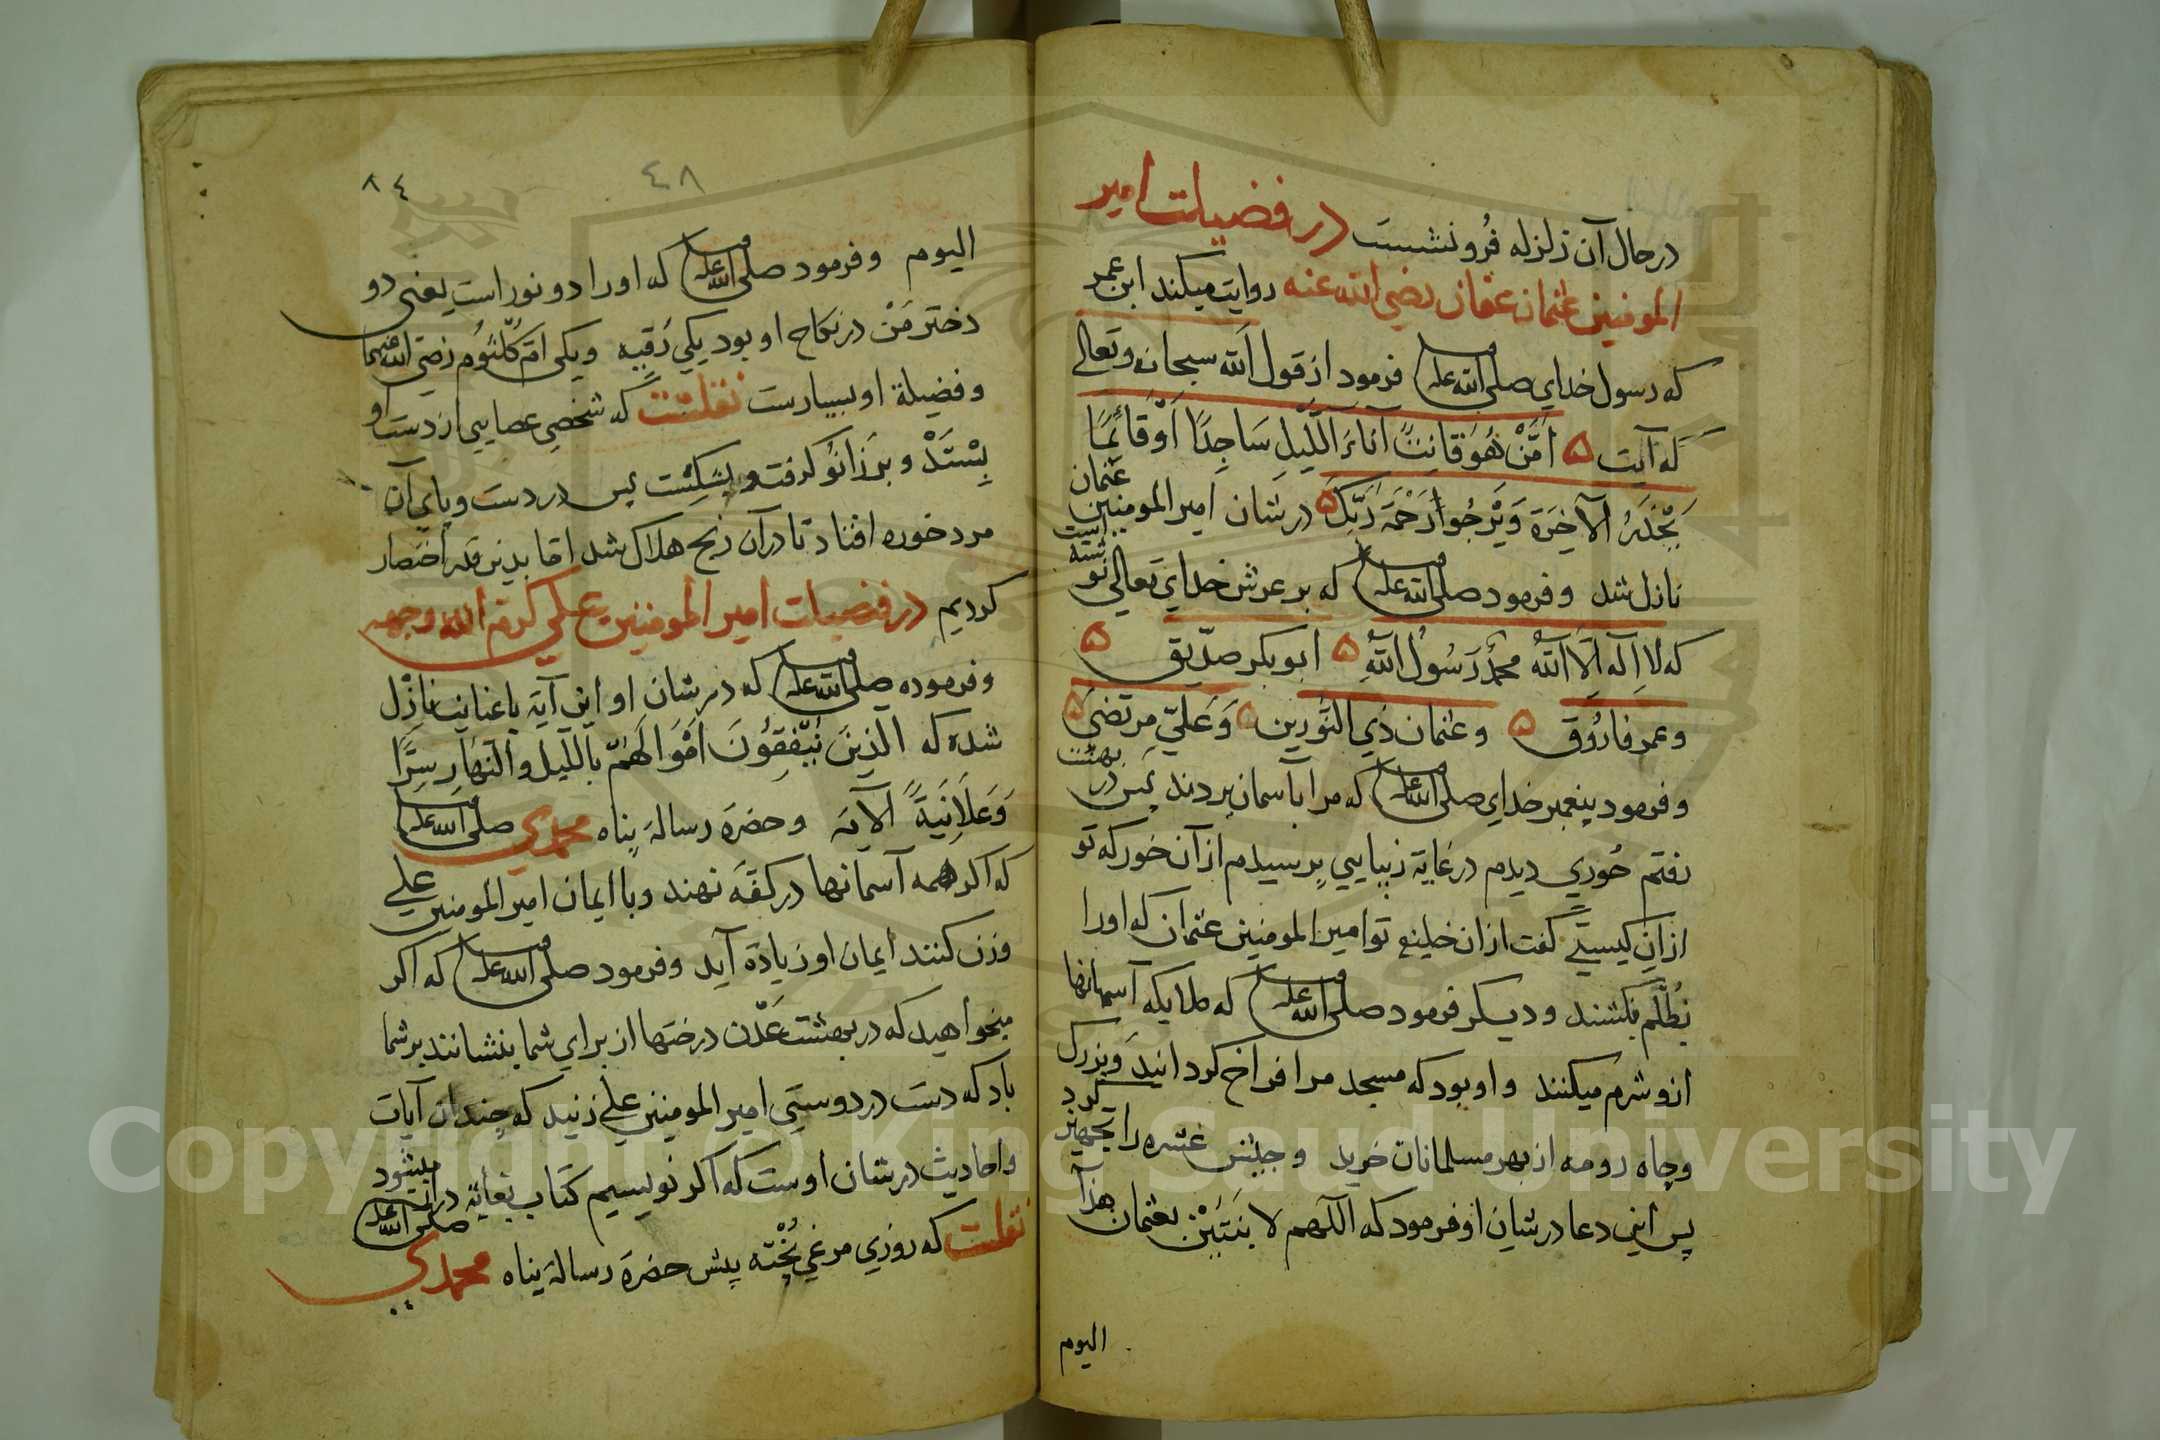 درحال آن زلزله فُرو نشست در فضیلت امیر
المومنین عثمان عفان رضي الله عنه روایت میکند ابن عمر
که رسول خداي صلی الله علیه وسلم فرمود از قول اَلله سبحانه وتعالی
که آیت ۵ اَمَّنْ هُوَ قَانِتٌ آنَاءَ اللَّیلِ سَاجِدًا اَوْ قَائِمًا
یَحْذَرُ الْآخِرَةَ وَیَرْجُوا رَحْمَةَ رَبِّکَ ۵ در شان امیر المومنین عثمان است
نازل شد وفرمود صلی الله علیه وسلم که بر عرش خداي تعالی نو شته
که لا اِلٰه اِلَّا اَللّٰهُ محمدٌ رَسُولُ اللّٰهِ ۵ ابو بکر صدّیق ۵
وعمر فارُوق ۵ وعثمان ذي النُورین ۵ وَعَليّ مرتضيٰ ۵
وفرمود پیغمبر خداي صلی الله علیه وسلم که مرا بآسمان بردند پس در بهشت
رفتم حُوري دیدم در غایة زیبایي پرسیدم از آن حور که تو
ازان کیستي گفت ازان خلیفه تو امیر المومنین عثمان که او را
بُظلم بکشند ودیگر فرمود صلی الله علیه وسلم که ملایکه آسمانها
ازو شرم میکنند واو بود که مسجد مرا فراخ کردانید وبزرك کرد
وچاه رومه از بهر مسلمانان خرید وجیش عسره را تجهیز
پس این دعا در شان او فرمود که اللهم لا بعثمان هذا
الیوم
٤٨
٨٤
الیوم وفرمود صلی الله علیه وسلم که اورا دو نور است یعني دو
دختر مَنْ در نکاح او بود یکي رُقیه ویکی ام کُلْثوُم رضي الله عنهما
وفضیلة او بسیارست نقلست که شخصي عصایي از دست او
بِسْتَدْ وبر زانوُ گرفت وبشکست پس در دست وپاي آن
مرد خوره افتاد تا درآن رنج هلاك شد اما بدین قدر اختصار
کردیم در فضیلت امیر المومنین علي کرم الله وجهه
وفرموده صلی الله علیه وسلم که در شان او این آیَة باعنایت نازل
شده که الَّذِینَ یُنْفِقُوُنَ اَمْوَالَهُمْ بِاللَّیلِ وَالنَّهَارِ سِرًّا
وَعَلَانِیَةً الآیَه وحضرة رسالة پناه محمدي صلی الله علیه وسلم
که اگر همه آسمانها در کفَّه نهند وبا ایمان امیر المومنین علي
وزن کنند ایمان او زیادة آید وفرمود صلی الله علیه وسلم که اگر
میخواهید که در بهشت عَدْن درختها از براي شما بنشانند بر شما
باد که دست در دوستي امیر المومنین علي زنید که چندان آیات
واحادیث در شان اوست که اگر نویسیم کتاب بغایة دراز میشود
نقلست که روزي مرغي پُخْته پیش حضرة رسالة پناه محمدي صلی الله علیه